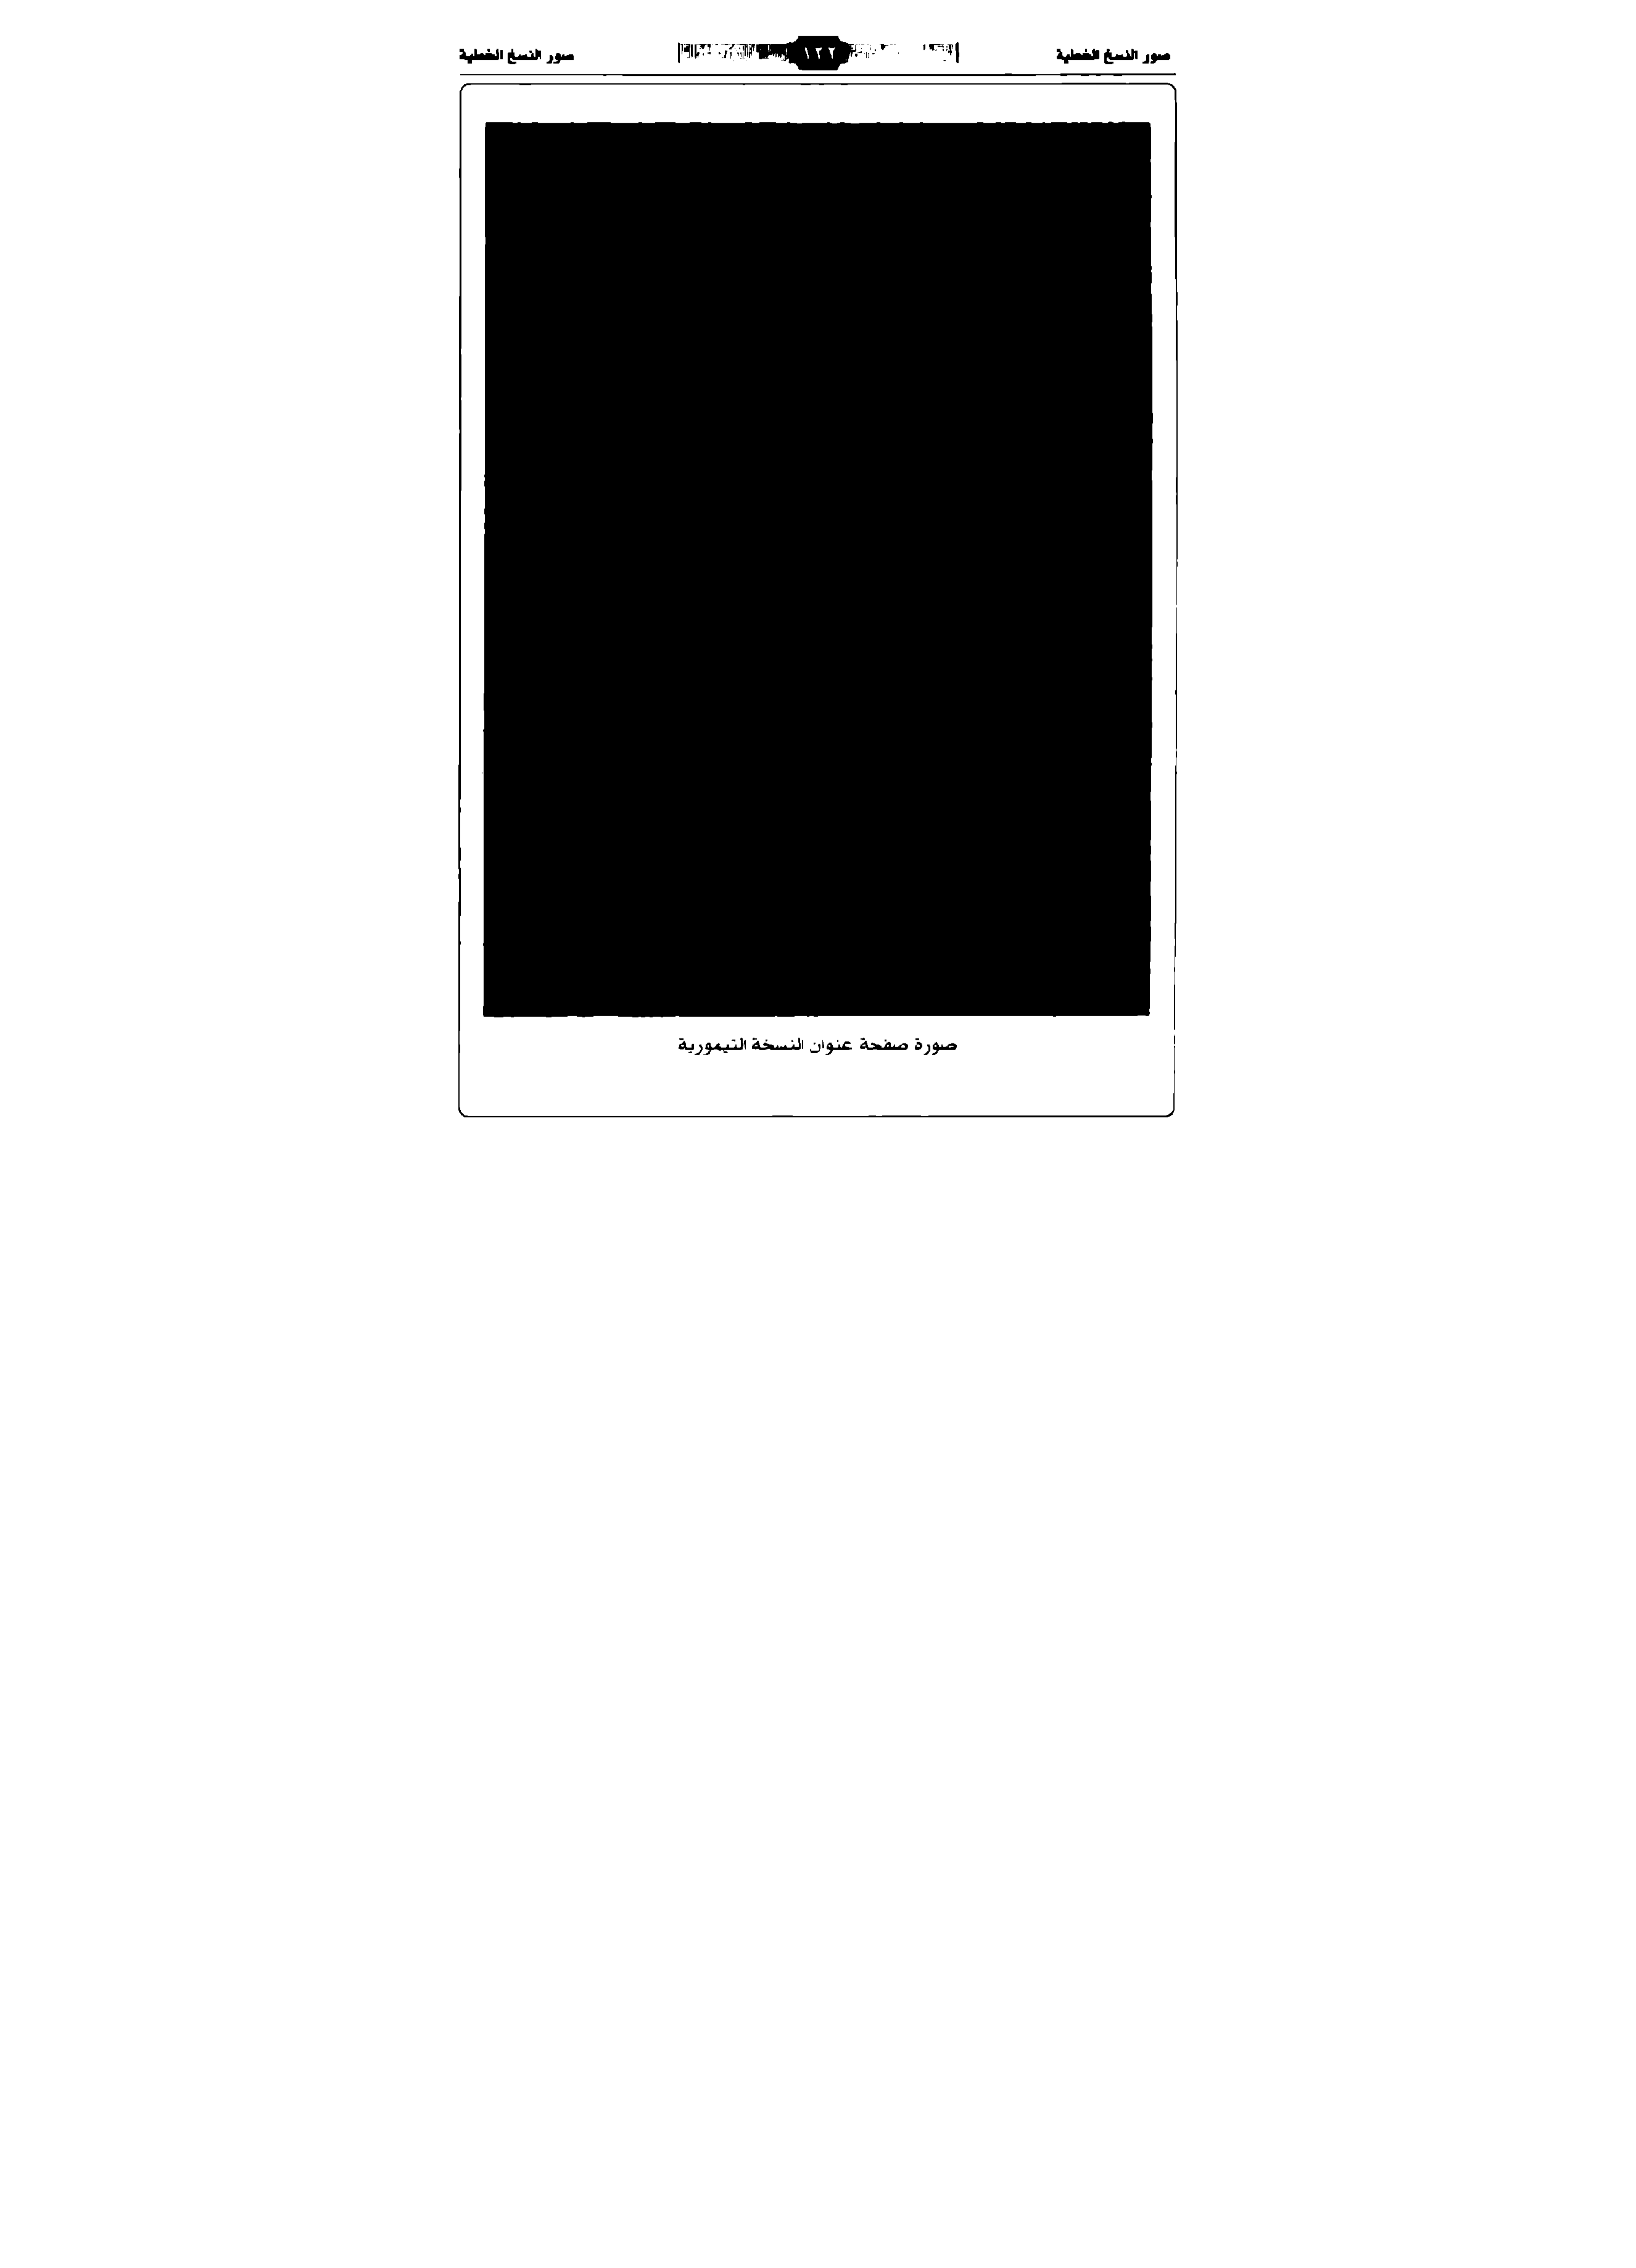 صور النسخ الخطية ١٢٢ صور النسخ الخطية
صورة صفحة عنوان النسخة التيمورية